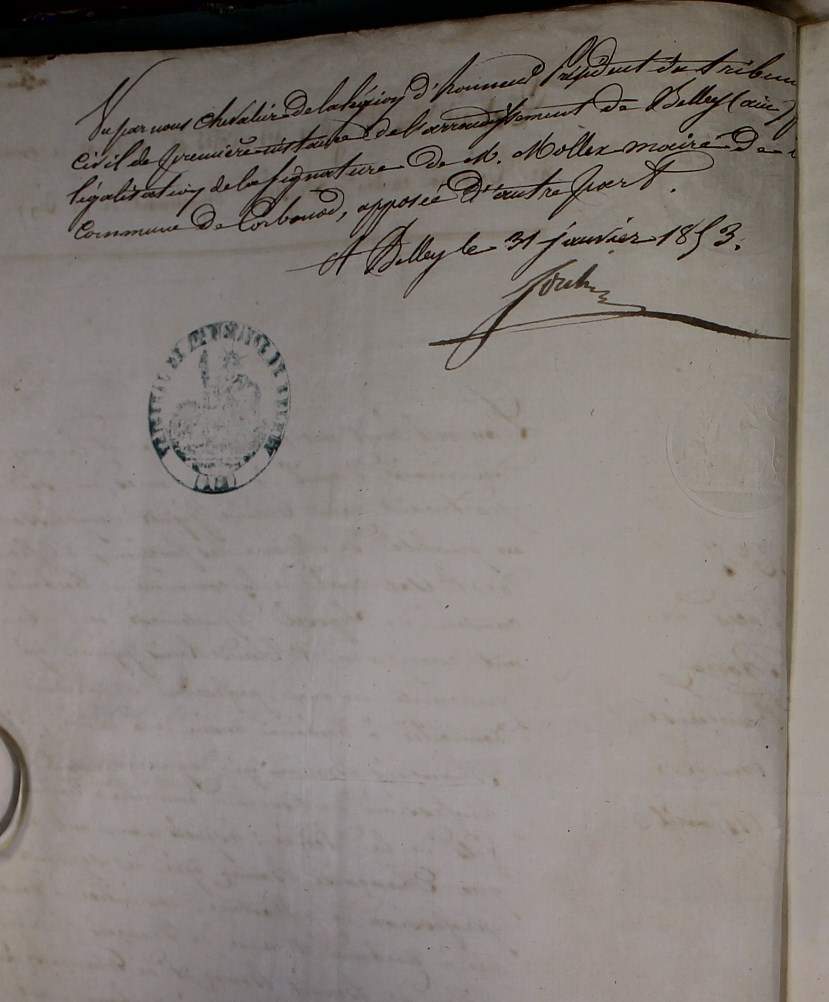 Vu par nous chevalier de la légion d'honneur Président du tribun
civil de première instance de l'arrondissement de Belley (ain) p
légalisation de la signature de M. Mollex maire de
commune de Corbonod, apposée d'autre part.
A Belley le 31 janvier 1853.
TRIBUNAL DE 1RE INSTANCE DE BELLEY
(AIN)